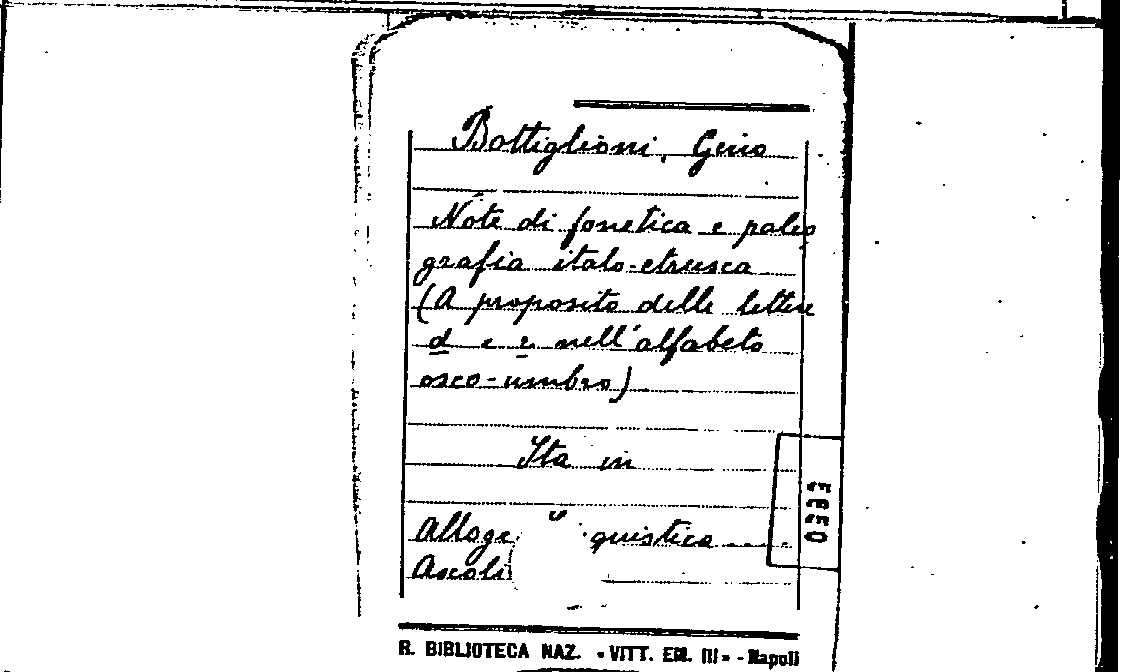 Bottiglioni, Gino
Note di fonetica e paleo
grafia italo-etrusca
(A proposito delle lettere
d e e nell'alfabeto
osco-umbro)
Sta in
Ascoli
R. BIBLIOTECA NAZ. - VITT. EM. III - - Napoli